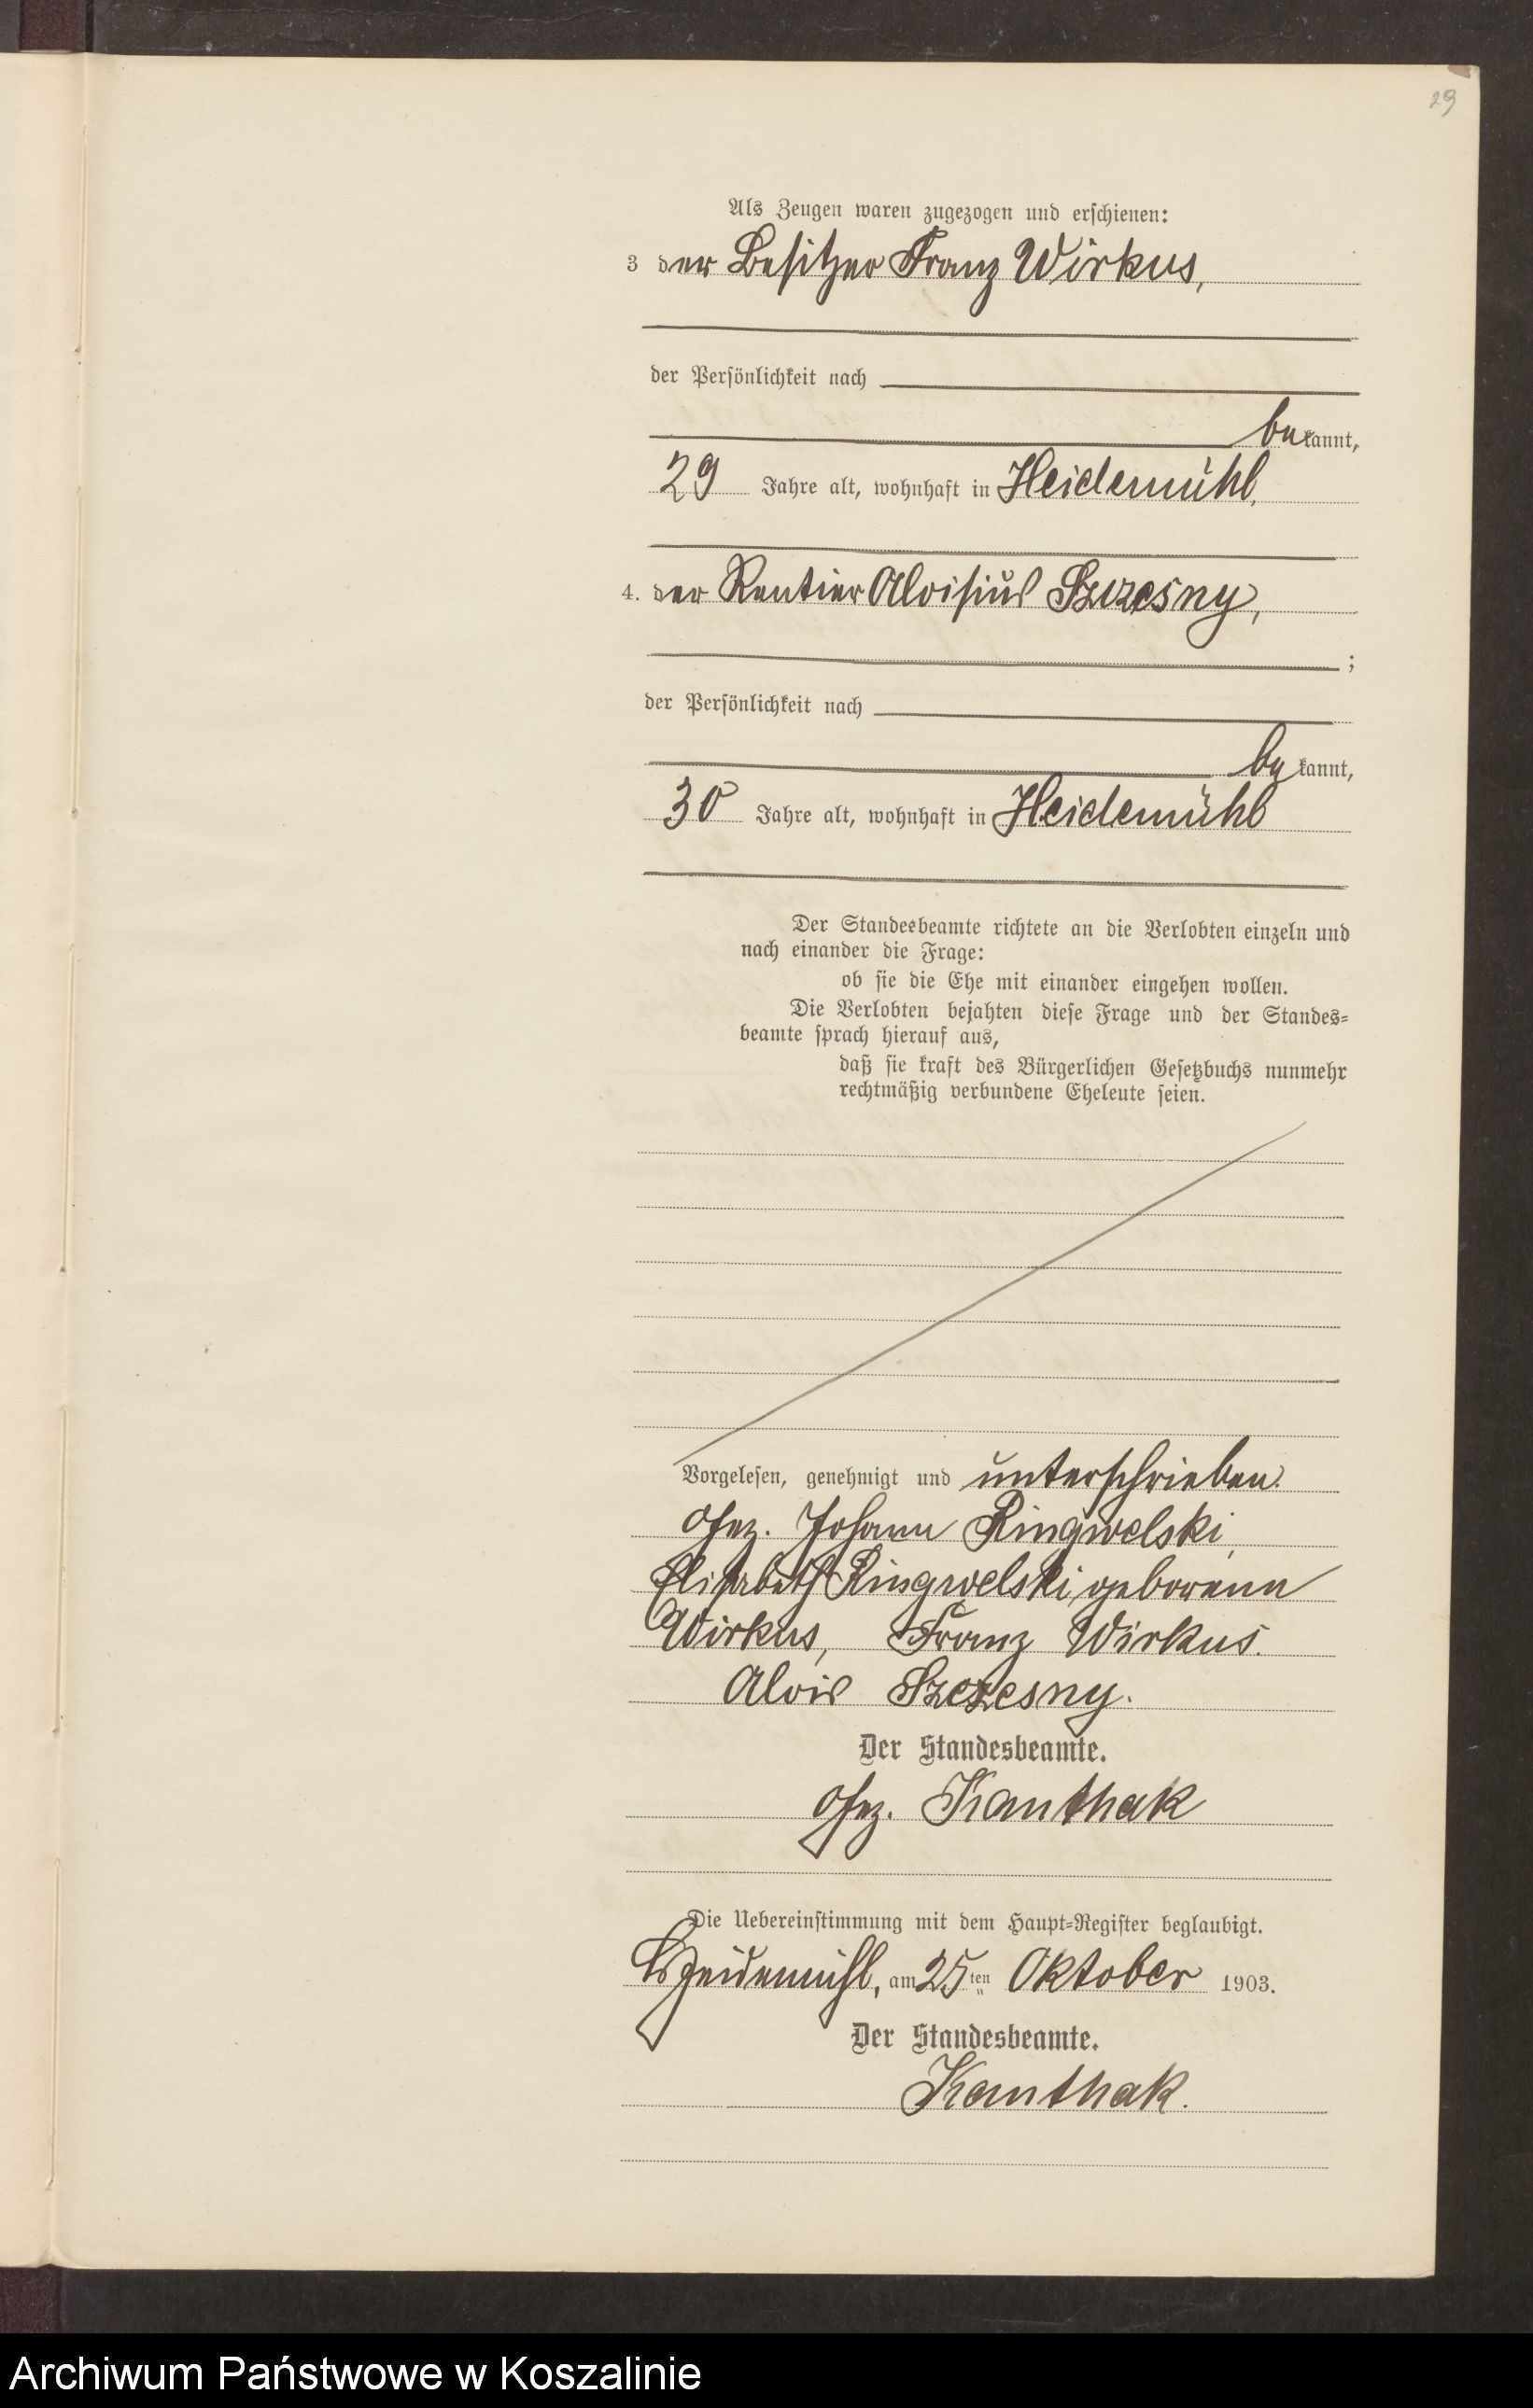 29
Als Zeugen waren zugezogen und erschienen:
3 der Besitzer Franz Wirkus,
der Persönlichkeit nach
be kannt,
29 Jahre alt, wohnhaft in Heidemühl,
4. der Rentier Aloisius Szczesny,
;
der Persönlichkeit nach
be kannt,
30 Jahre alt, wohnhaft in Heidemühl
Der Standesbeamte richtete an die Verlobten einzeln und
nach einander die Frage:
ob sie die Ehe mit einander eingehen wollen.
Die Verlobten bejahten diese Frage und der Standes-
beamte sprach hierauf aus,
daß sie kraft des Bürgerlichen Gesetzbuchs nunmehr
rechtmäßig verbundene Eheleute seien.
Vorgelesen, genehmigt und unterschrieben.
gez. Johann Ringwelski,
Elisabeth Ringwelski geborene
Wirkus, Franz Wirkus.
Alois Szczesny.
Der Standesbeamte.
gez. Kanthak
Die Uebereinstimmung mit dem Haupt-Register beglaubigt.
Heidemühl, am 25ten Oktober 1903.
Der Standesbeamte.
Kanthak.
Archiwum Państwowe w Koszalinie